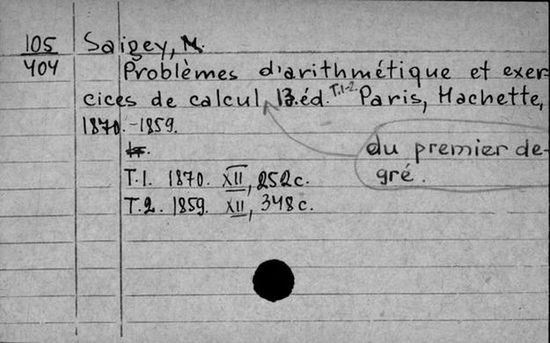 105 Saigey, M.
404 Problèmes d'arithmétique et exer-
cices de calcul 13.éd. T.1-2 Paris, Hachette,
1870.-1859.
du premier de-
gré.
T.1. 1870. XII, 252c.
T.2. 1859. XII, 348c.